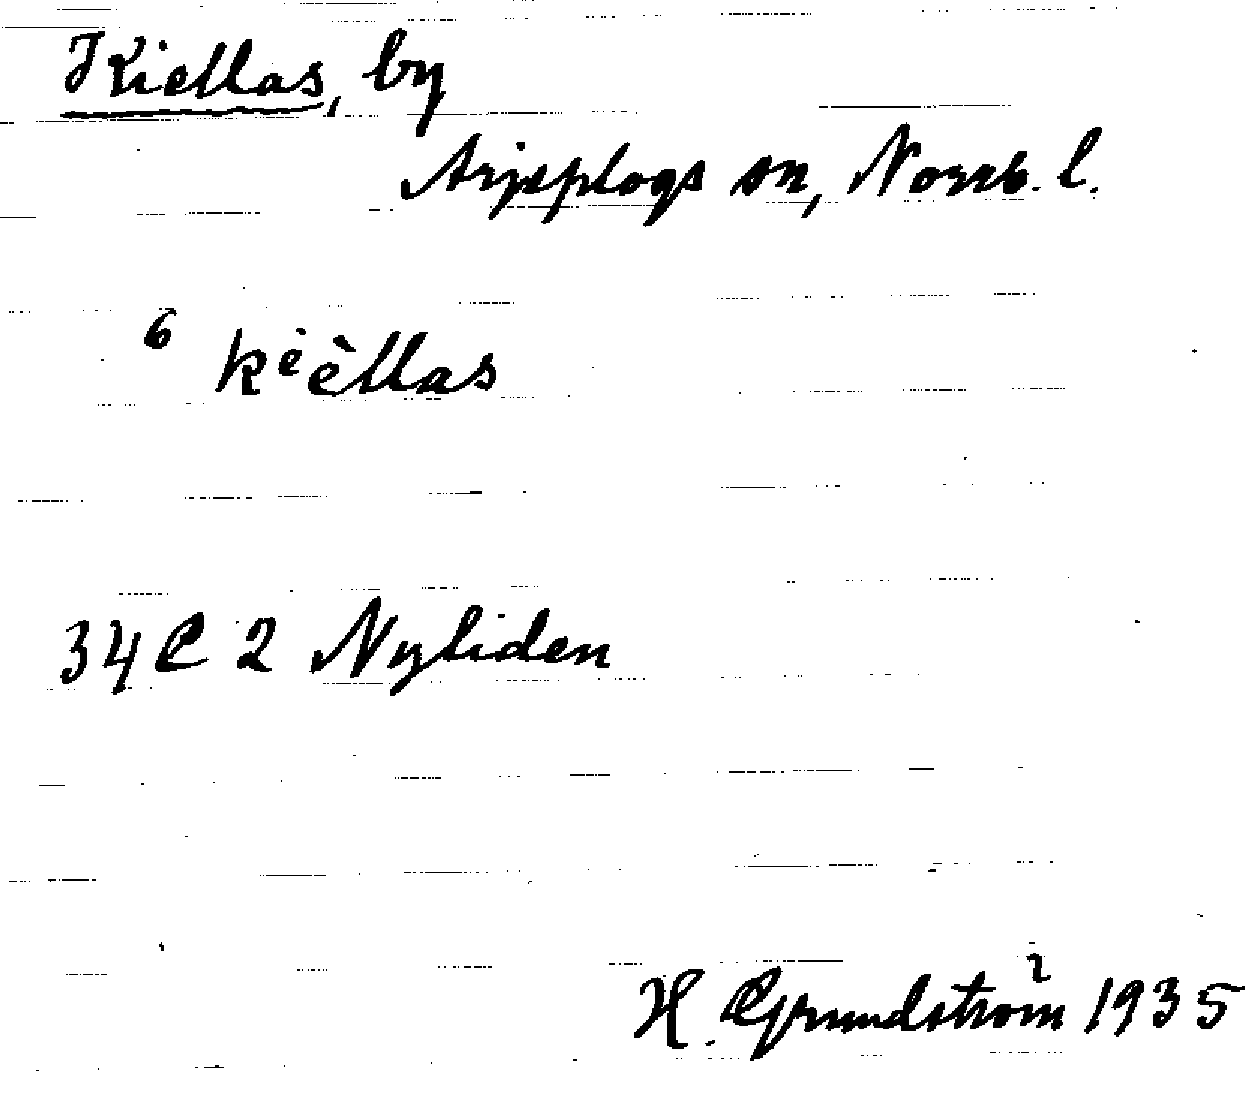 Kiellas, by
Arjeplogs sn, Norrb. l.
6 kièllas
34 C 2 Nyliden
H. Grundström 1935